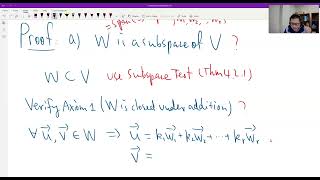 Proof: a) W is a subspace of V ?
W ⊂ V use Subspace Test (Thm 4.2.1)
Verify Axiom 1 (W is closed under addition) ?
∀ u⃗, v⃗ ∈ W ⇒ u⃗ = k₁w⃗₁ + k₂w⃗₂ + ··· + kᵣw⃗ᵣ
v⃗ =